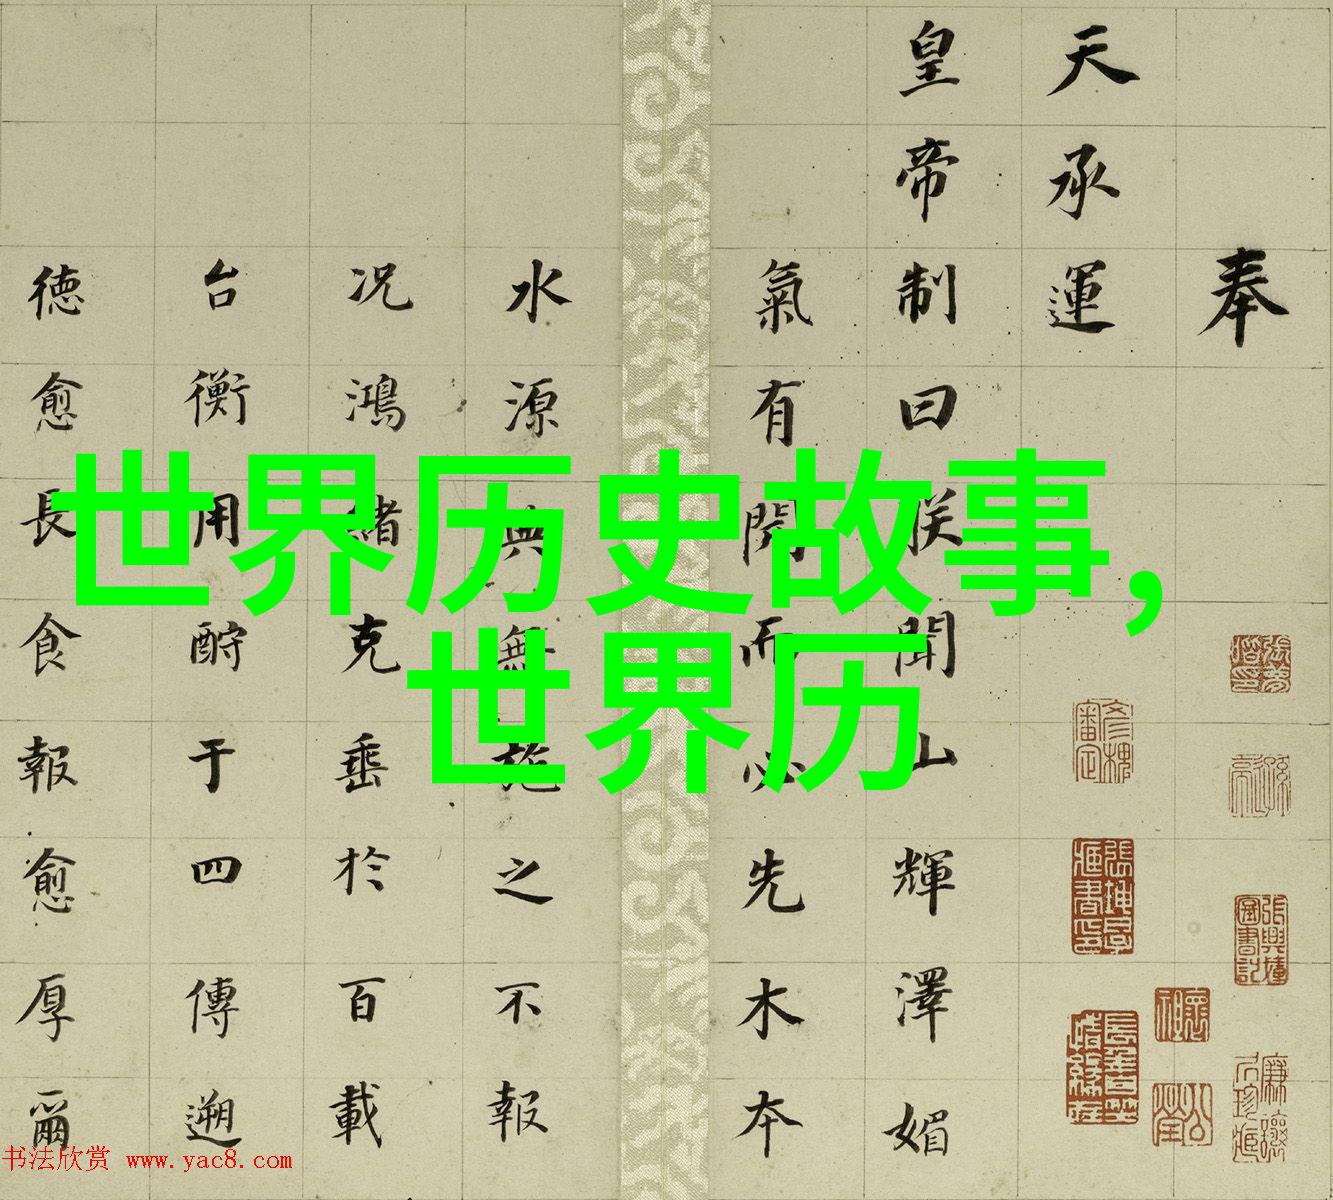 奉
天承運
皇帝制曰朕聞山輝澤媚
氣有開而必先木本
水源典無施之不報
况鴻緒克垂於百載
台衡用酧于四傳遡
德愈長食報愈厚爾
世界历史故事,
世界历
书法欣赏 www.yac8.com